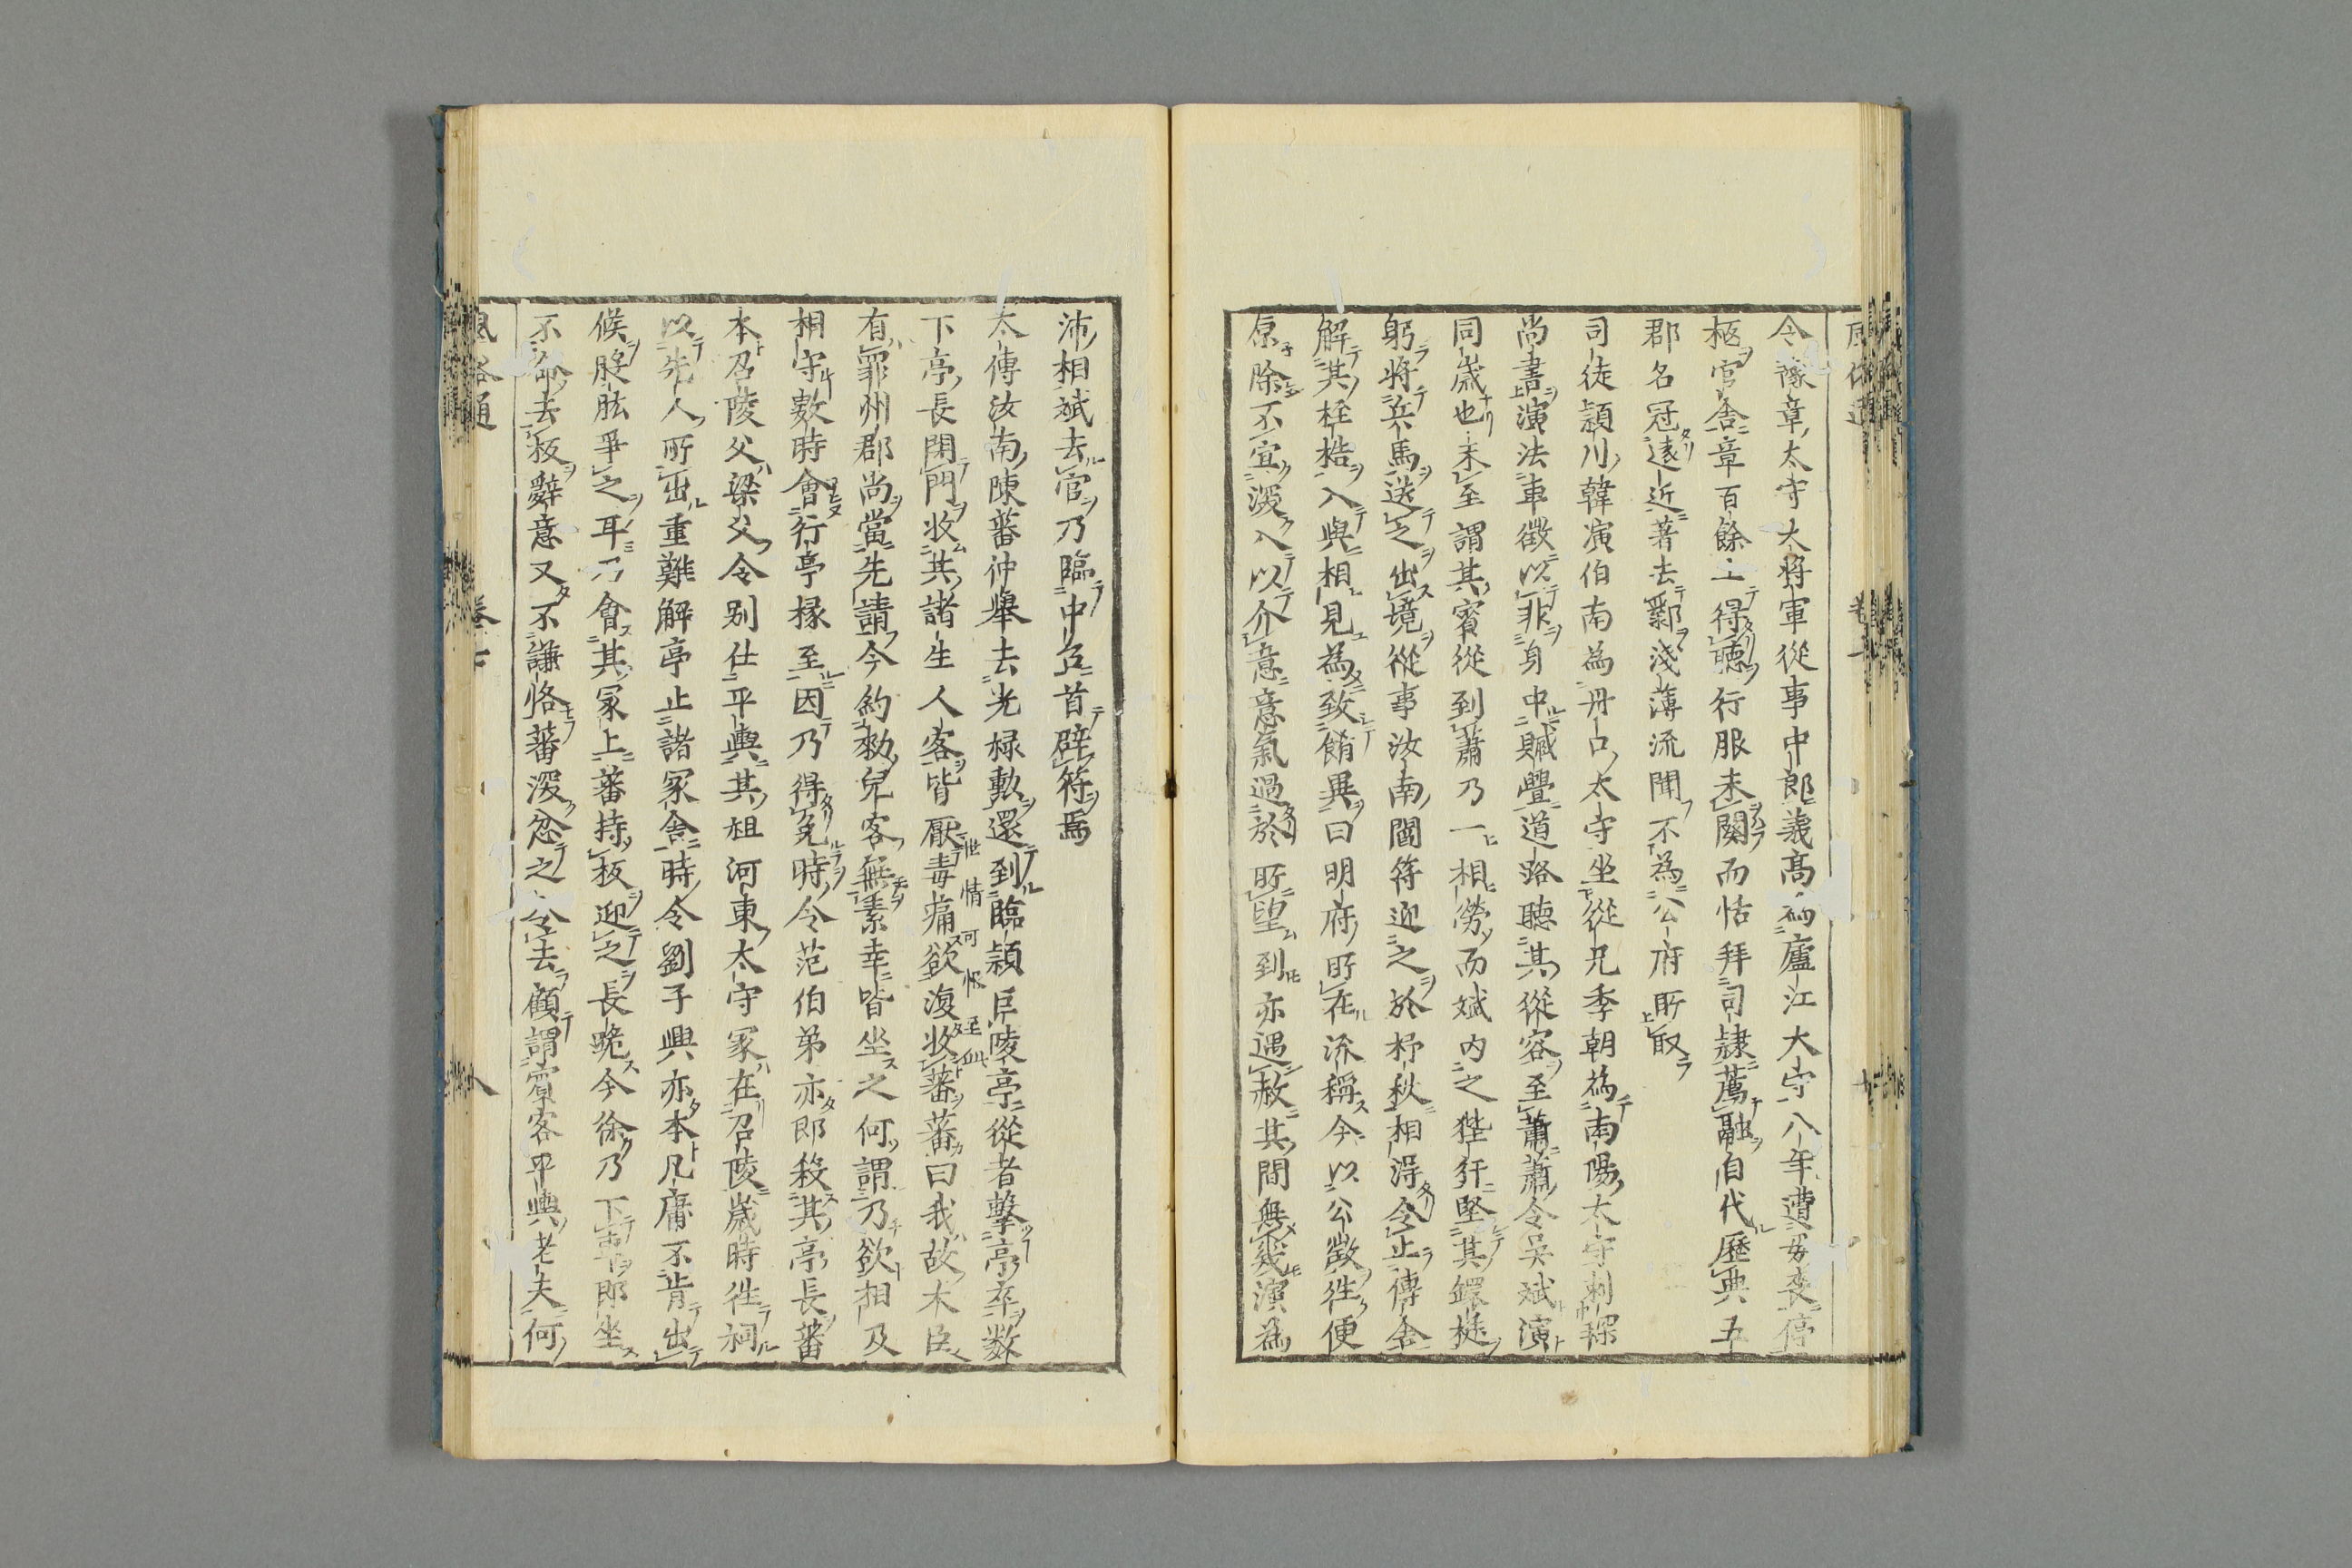 令豫章太守大將軍從事中郎義髙為廬江大守八年遭母喪停
柩官舎章百餘上得聽行服未闋而怙拜司隷薦融自代歷典五
郡名冠遠近著去鄴淺薄流聞不為公府所取
司徒頴川韓演伯南為丹口太守坐從兄季朝為南陽太守刺探
尚書演法車徴以非身中贓舋道路聽其從容至蕭蕭令吳斌演
同歳也未至謂其賓從到蕭乃一相勞而斌内之狴犴堅其鐶梃
躬將兵馬送之出境從事汝南閻符迎之於杼秋相得令止傳舎
解其桎梏入與相見為致餚異曰明府所在流稱今以公徴徃便
原除不宜深入以介意意氣過於所望到亦遇赦其間無幾演為
沛相斌去官乃臨中臣首辟符焉
太傅汝南陳蕃仲舉去光禄勲還到臨頴臣陵亭從者擊亭卒數
下亭長閉門收其諸生人客皆厭毒痛欲復收蕃蕃曰我故大臣
世情可恨至此
有罪州郡尚當先請今約勑兒客無素幸皆坐之何謂乃欲相及
相守數時會行亭掾至因乃得免時令范伯弟亦即殺其亭長蕃
本召陵父梁父令别仕平輿其祖河東太守冢在召陵歳時徃祠
以先人所出重難解亭止諸冢舎時令劉子興亦本凡庸不肯出
候股肱爭之耳乃會其冢上蕃持板迎之長跪令徐乃下車即坐
不命去板辭意又不謙恪蕃深忿之令去顧謂賔客平輿老夫何
風俗通
卷七
八